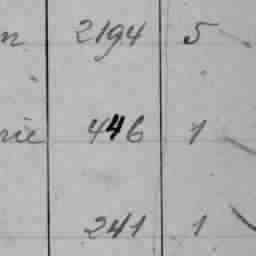 n 2194 5
rie 446 1
241 1